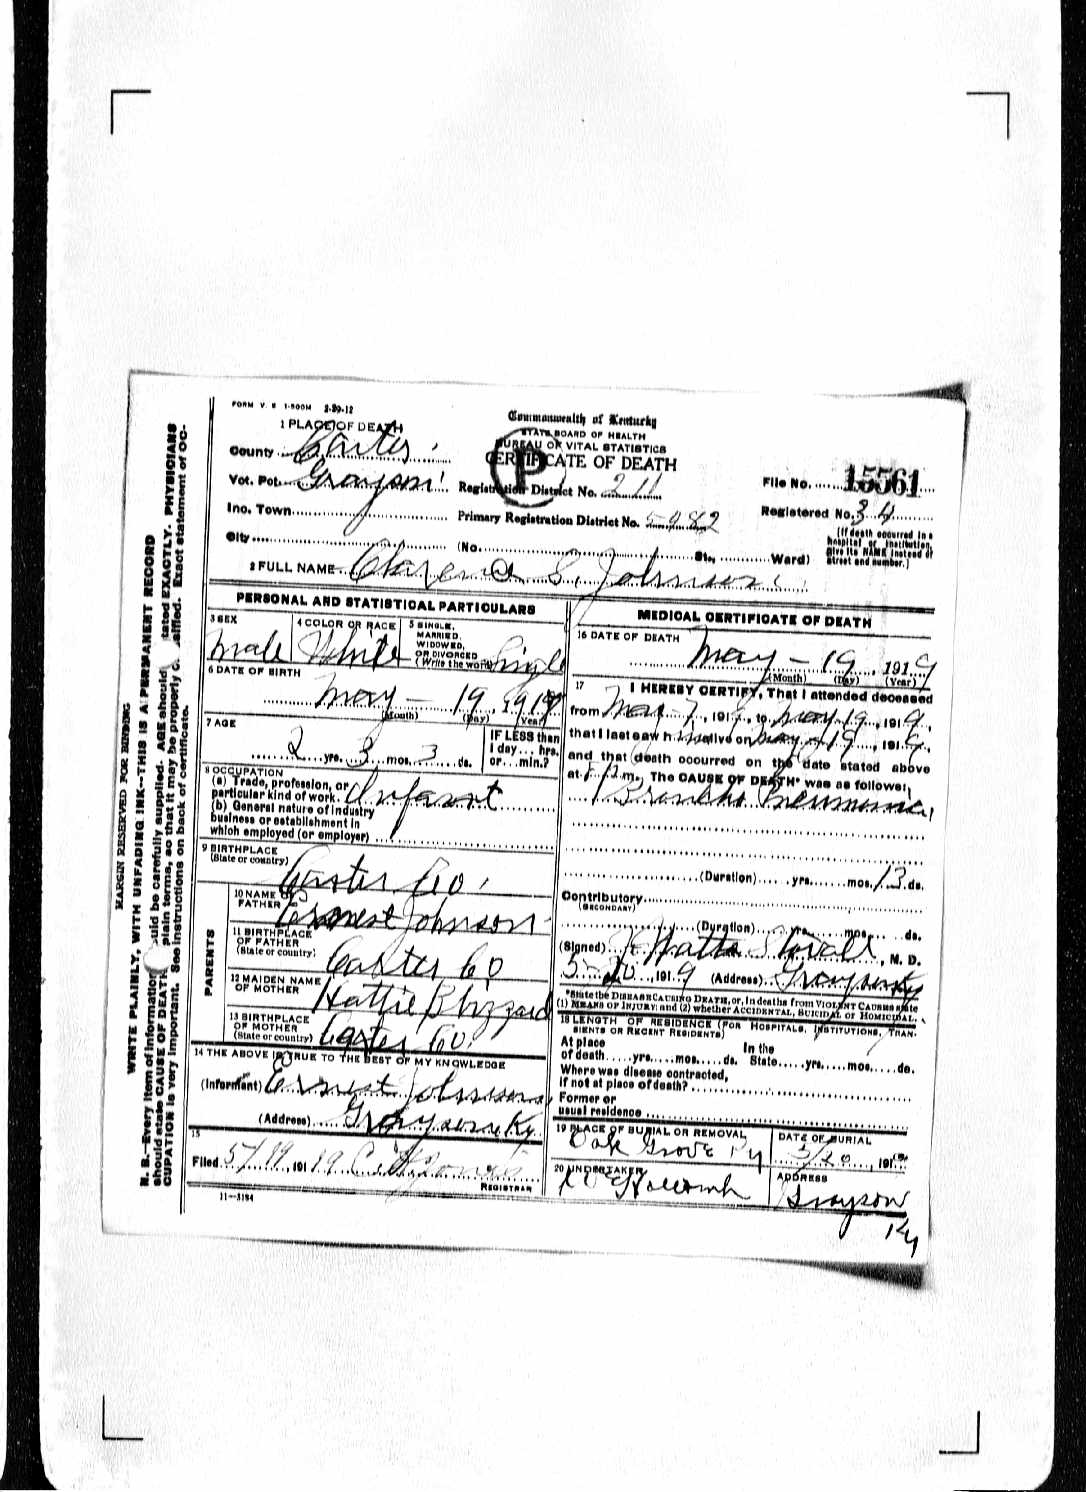 FORM V. S 1-500M 2-29-12
Commonwealth of Kentucky
STATE BOARD OF HEALTH
BUREAU OF VITAL STATISTICS
CERTIFICATE OF DEATH
P
1 PLACE OF DEATH
County Carter
Vot. Pct. Grayson
Inc. Town
City
Registration District No. 211
Primary Registration District No. 5482
(No. St., Ward)
File No. 15561
Registered No. 34
(If death occurred in a
hospital or institution,
give its NAME instead of
street and number.)
2 FULL NAME Clarence S. Johnson
PERSONAL AND STATISTICAL PARTICULARS
3 SEX
male
4 COLOR OR RACE
White
5 SINGLE,
MARRIED,
WIDOWED,
OR DIVORCED
(Write the word)
Single
6 DATE OF BIRTH
May - 19, 1917
(Month) (Day) (Year)
7 AGE
2 yrs. 3 mos. 3 ds.
IF LESS than
1 day ... hrs.
or ... min.?
8 OCCUPATION
(a) Trade, profession, or
particular kind of work. Infant
(b) General nature of industry
business or establishment in
which employed (or employer)
9 BIRTHPLACE
(State or country)
Carter Co.
PARENTS
10 NAME OF
FATHER
Ernest Johnson
11 BIRTHPLACE
OF FATHER
(State or country)
Carter Co
12 MAIDEN NAME
OF MOTHER
Hattie Blizzard
13 BIRTHPLACE
OF MOTHER
(State or country)
Carter Co.
14 THE ABOVE IS TRUE TO THE BEST OF MY KNOWLEDGE
(Informant) Ernest Johnson
(Address) Grayson Ky
15
Filed 5/19, 1919
REGISTRAR
11-3184
MEDICAL CERTIFICATE OF DEATH
16 DATE OF DEATH
May - 19, 1919
(Month) (Day) (Year)
17
I HEREBY CERTIFY, That I attended deceased
from May 7, 1919, to May 19, 1919,
that I last saw him alive on May 19, 1919,
and that death occurred on the date stated above
at m. The CAUSE OF DEATH* was as follows:
Broncho Pneumonia
(Duration) yrs. mos. 13 ds.
Contributory
(SECONDARY)
(Duration) yrs. mos. ds.
(Signed) Watts Stovall, M. D.
5-20, 1919 (Address) Grayson Ky
*State the DISEASE CAUSING DEATH, or, in deaths from VIOLENT CAUSES state
(1) MEANS OF INJURY and (2) whether ACCIDENTAL, SUICIDAL or HOMICIDAL.
18 LENGTH OF RESIDENCE (FOR HOSPITALS, INSTITUTIONS, TRAN-
SIENTS OR RECENT RESIDENTS)
At place In the
of death yrs. mos. ds. State yrs. mos. ds.
Where was disease contracted,
if not at place of death?
Former or
usual residence
19 PLACE OF BURIAL OR REMOVAL
Oak Grove Ky
DATE OF BURIAL
5/20, 191
20 UNDERTAKER
Holcomb
ADDRESS
Grayson
Ky
MARGIN RESERVED FOR BINDING
WRITE PLAINLY, WITH UNFADING INK--THIS IS A PERMANENT RECORD
N. B.--Every item of information should be carefully supplied. AGE should stated EXACTLY. PHYSICIANS
should state CAUSE OF DEATH plain terms, so that it may be properly classified. Exact statement of OC-
CUPATION is very important. See instructions on back of certificate.